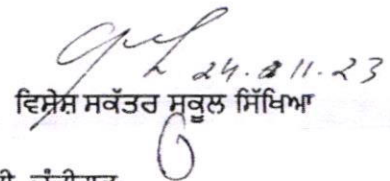 24.11.23
ਵਿਸ਼ੇਸ਼ ਸਕੱਤਰ ਸਕੂਲ ਸਿੱਖਿਆ